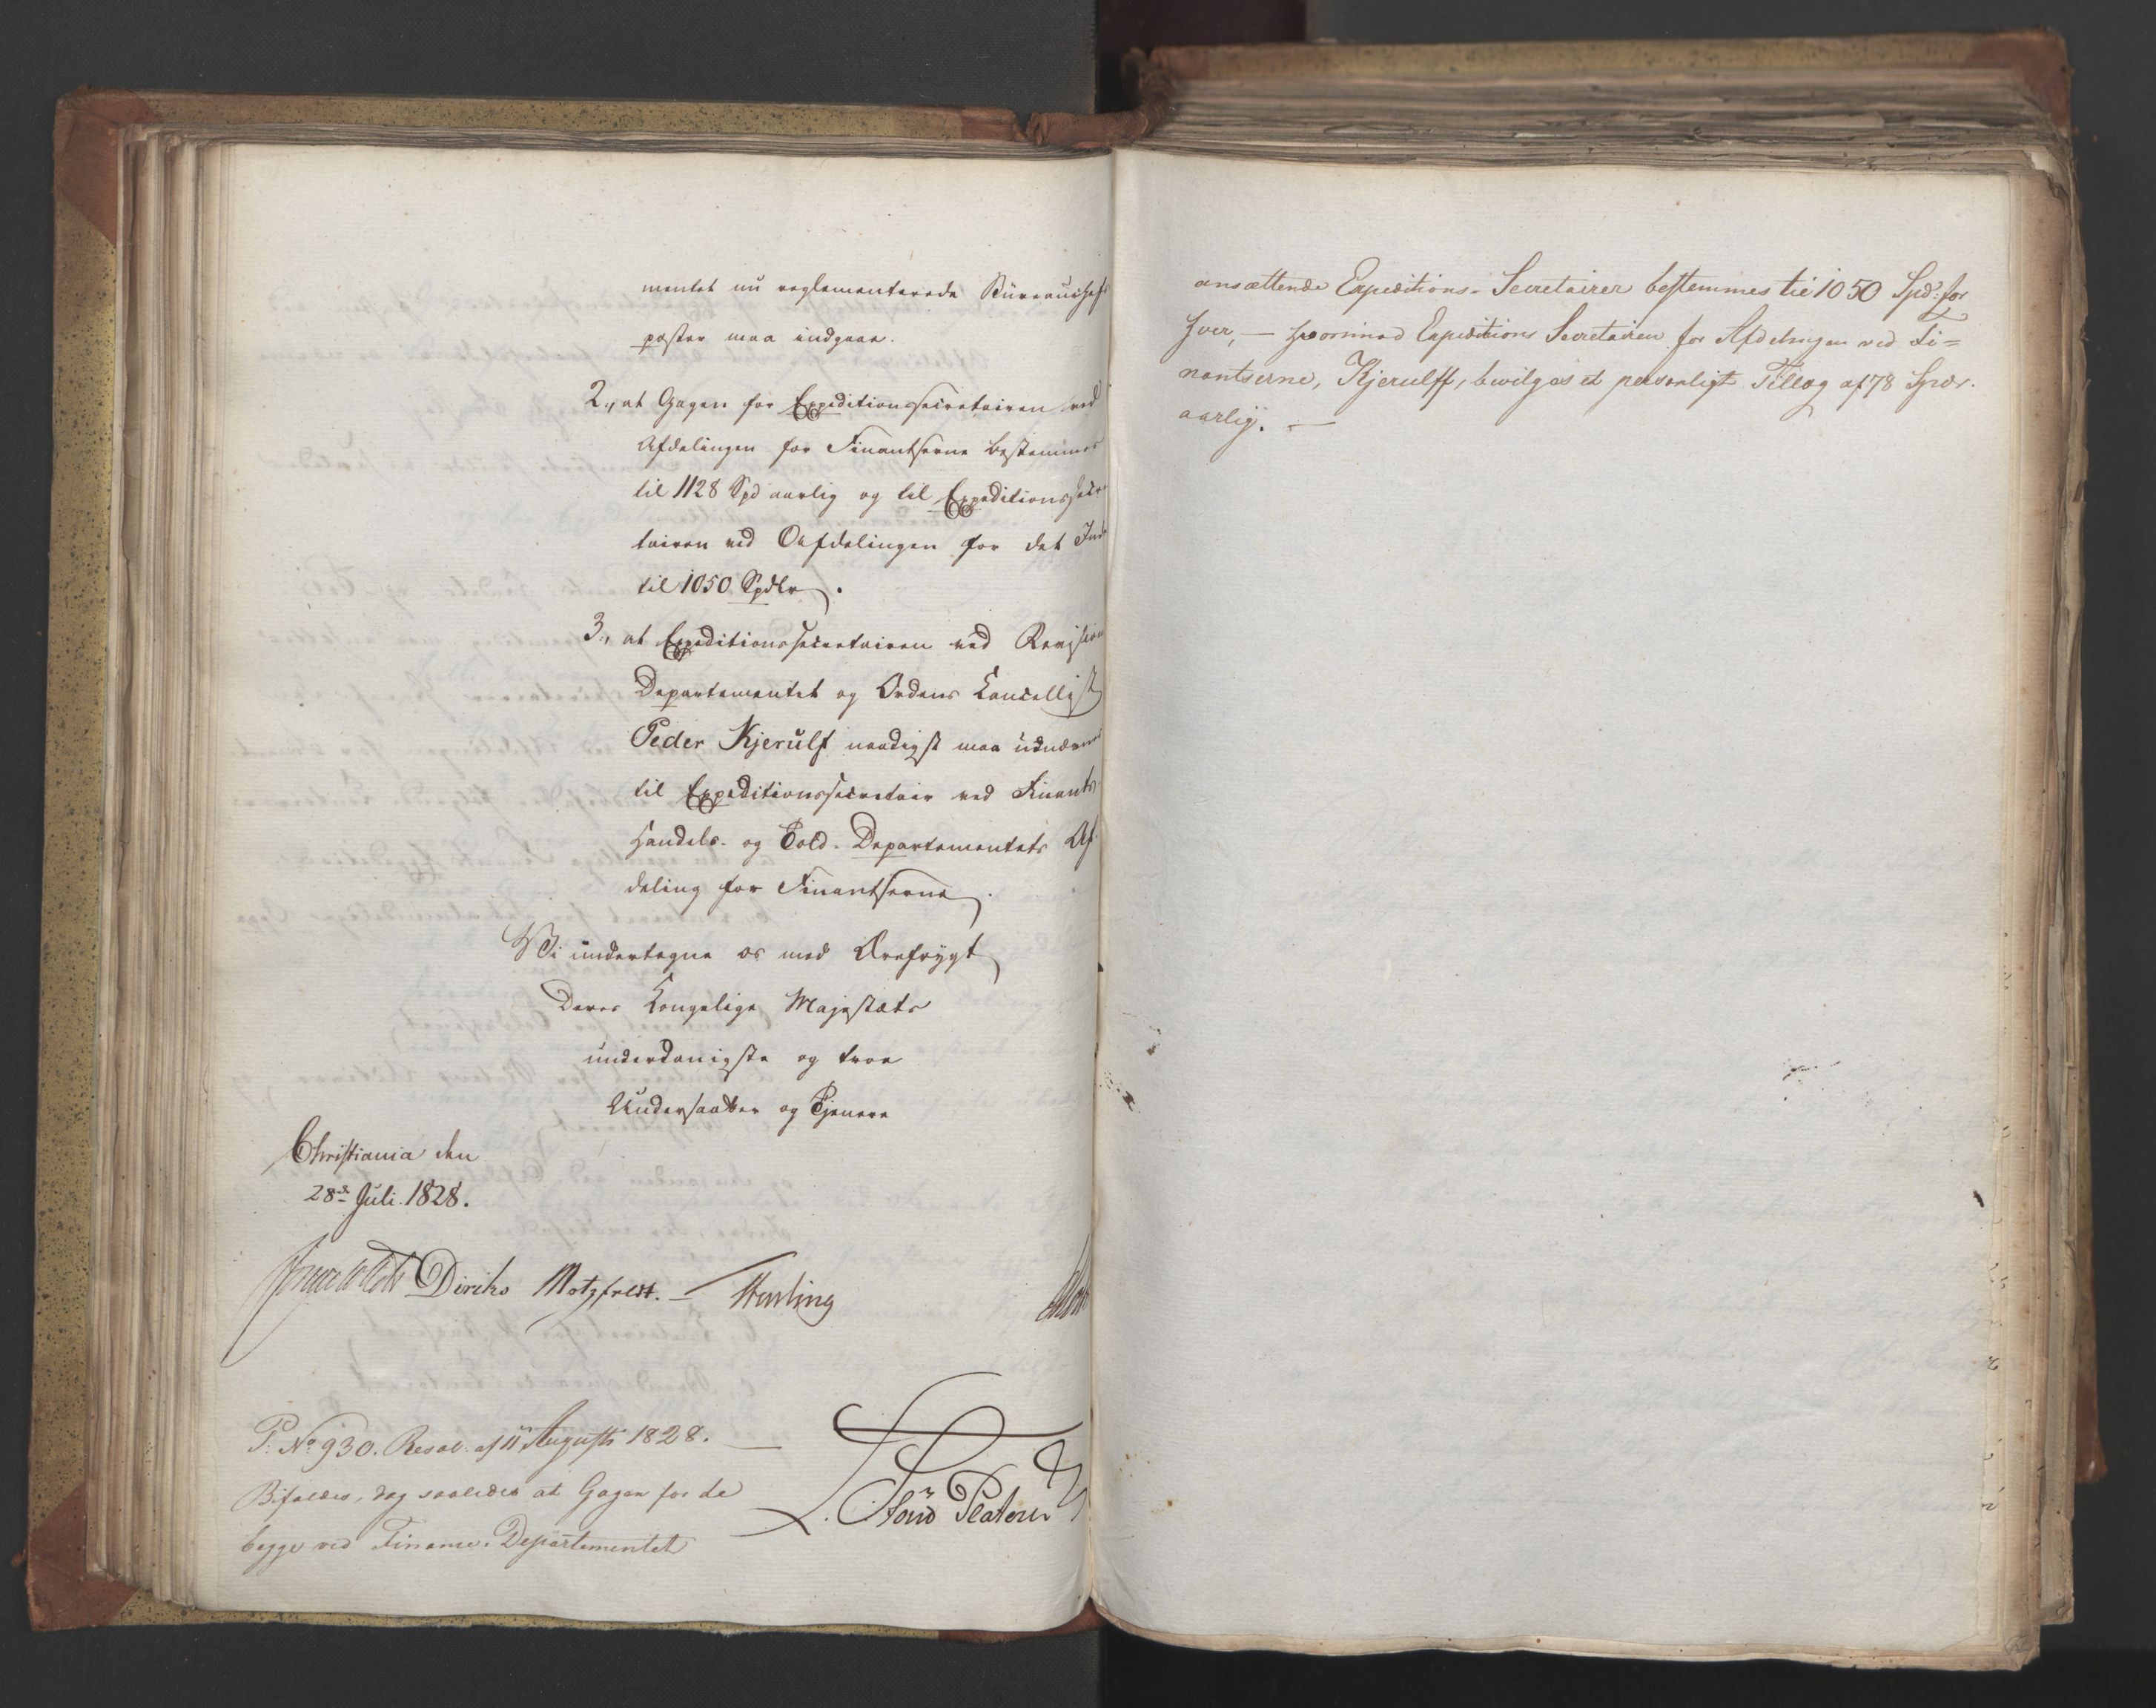 mentet nu reglementerede Büreauchefs
poster maa indgaae.
2., at Gagen for Expeditionssecretairen ved
Afdelingen for Finantserne bestemmes
til 1128 Spd aarlig og til Expeditionssecre
tairen ved Afdelingen for det Indr
til 1050 Spdlr.
3., at Expeditionssecretairen ved Revisions
Departementet og Ordens Cancellist
Peder Kjerulf naadigst maa udnævnes
til Expeditionssecretair ved Finants-
Handels- og Told-Departementets Af-
deling for Finantserne.
Vi undertegne os med Ærefrygt
Deres Kongelige Majestæts
underdanigste og troe
Undersaatter og Tjenere
Christiania den
28de Juli 1828.
Diriks Motzfeldt. —
P: No 930. Resol: af 11 Augusti 1828. —
Bifaldes, dog saaledes at Gagen for de
begge ved Finance-Departementet
Platen
ansættende Expeditions-Secretairer bestemmes til 1050 Spd: for
hver, — hvorimod Expeditions Secretairen for Afdelingen ved Fi=
nantserne, Kjerulff, bevilges et personligt Tillæg af 78 Spdr.
aarlig. —